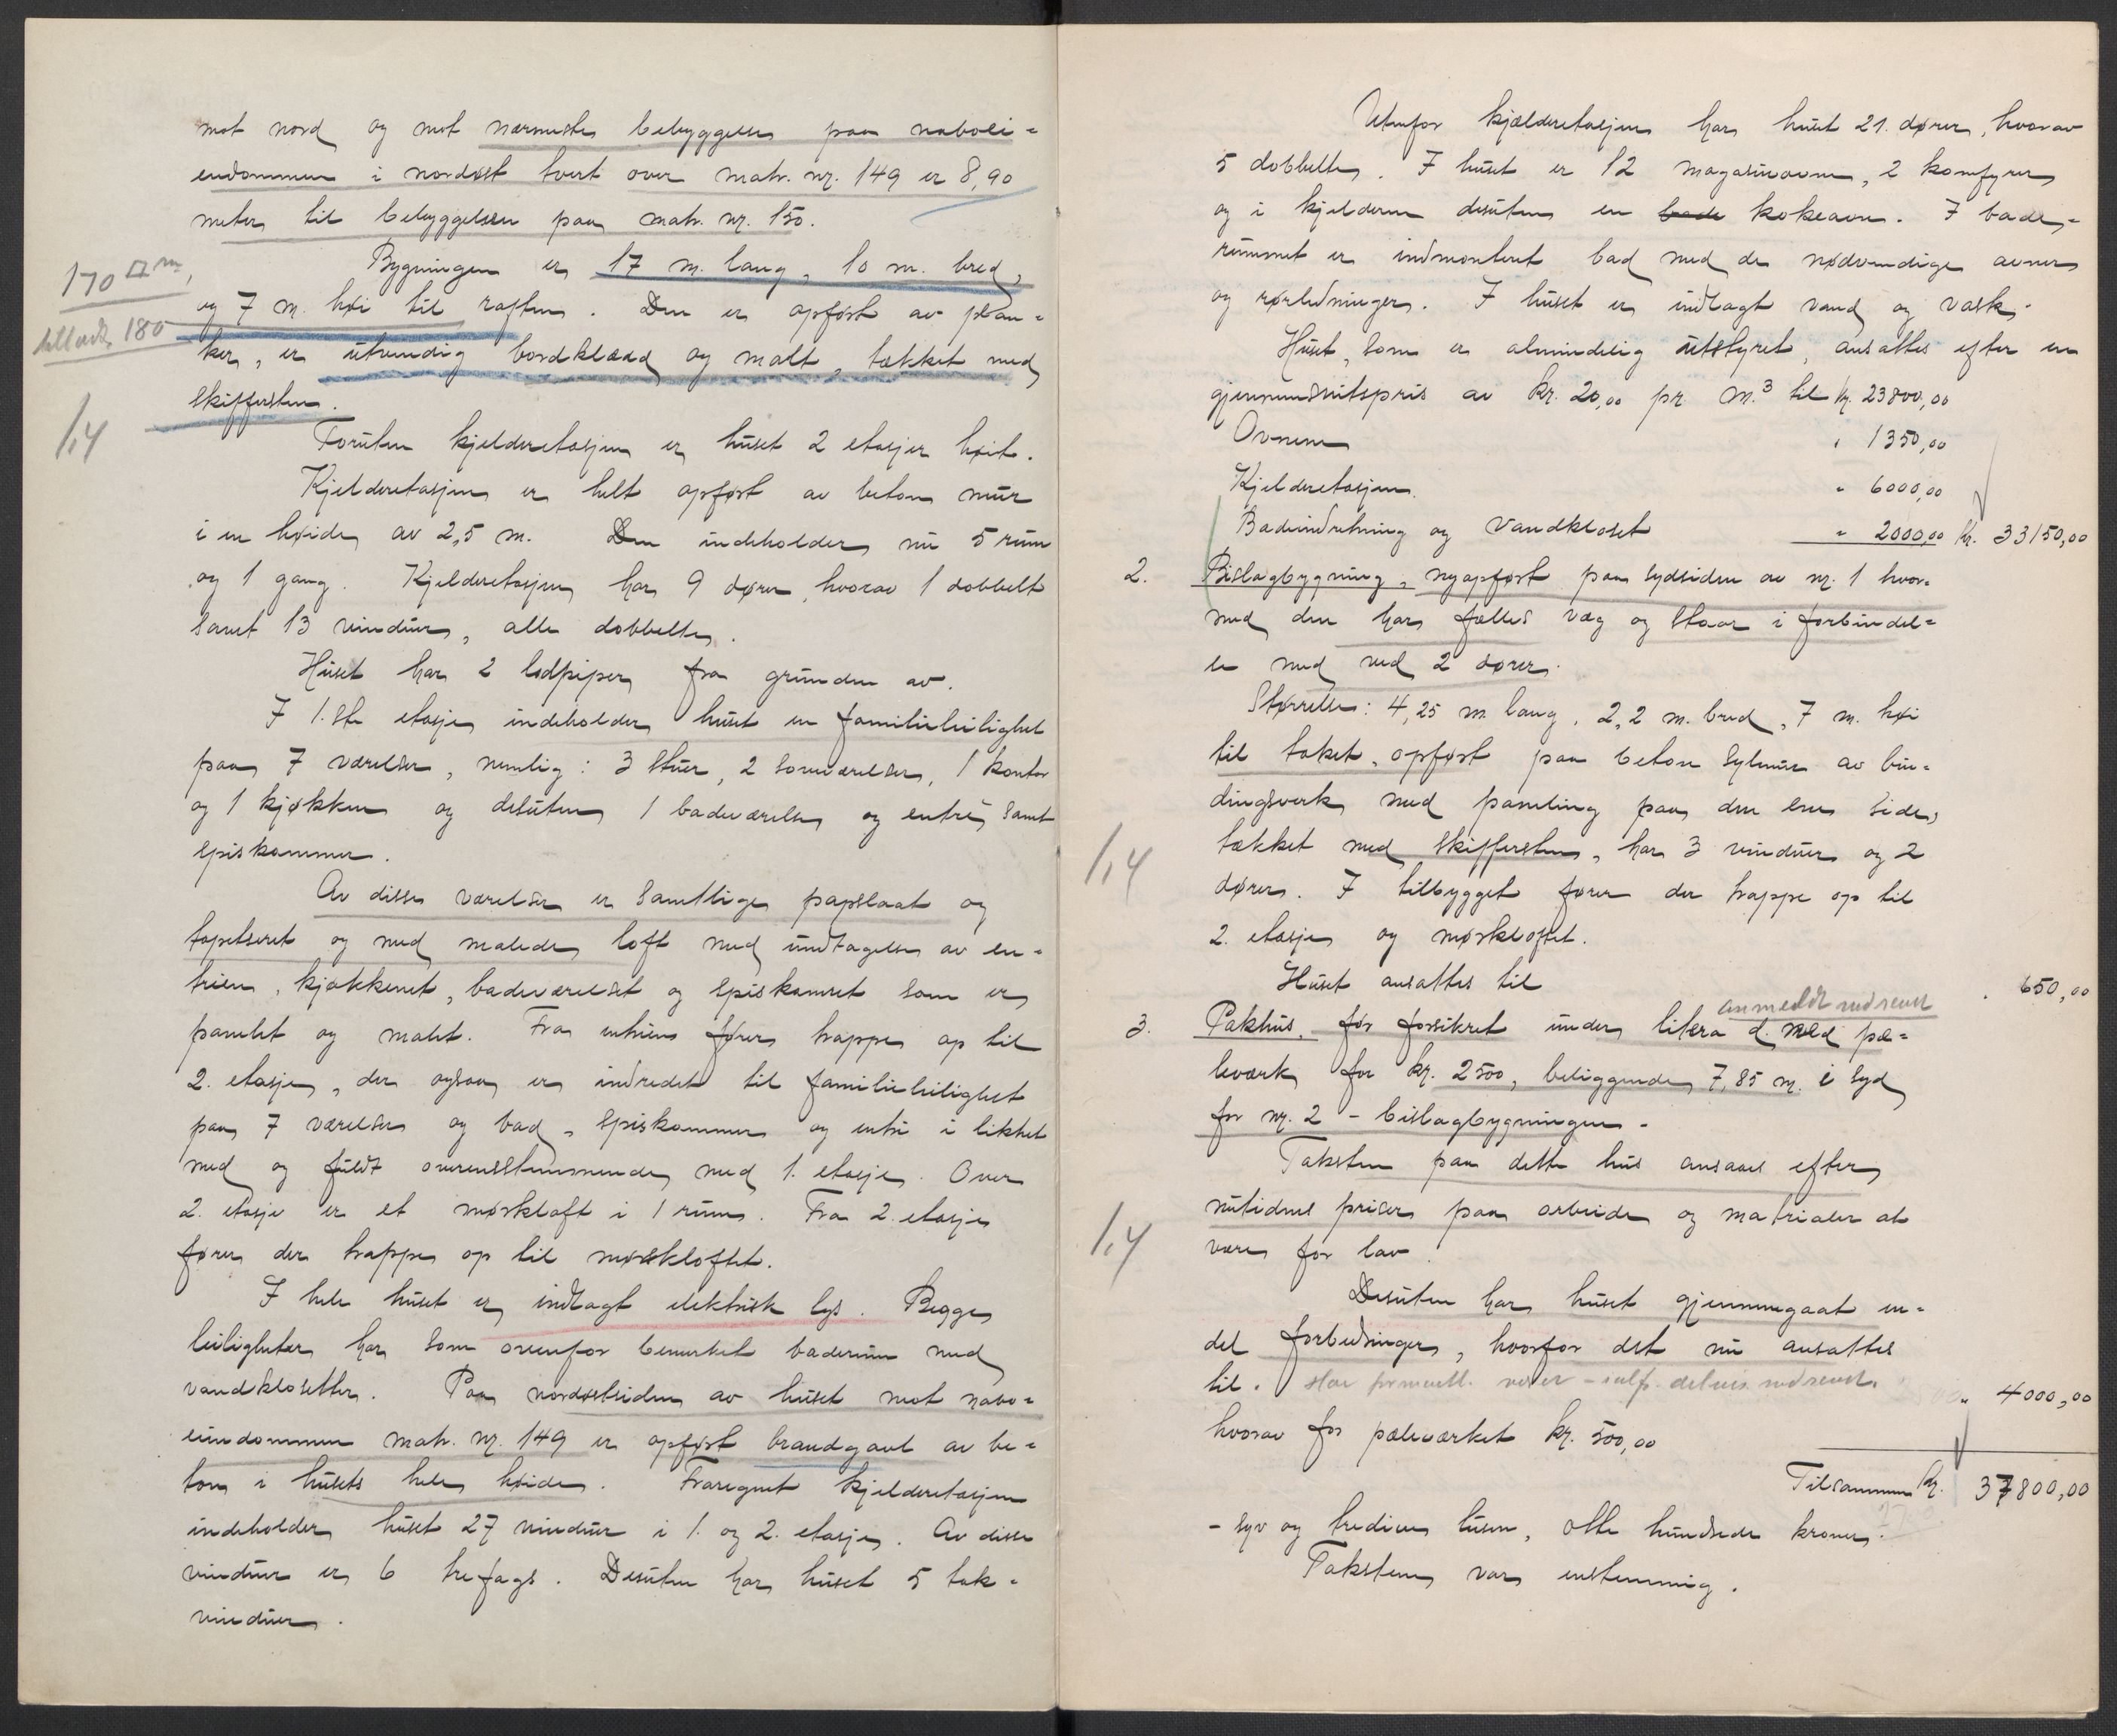 mot nord og mot nærmeste bebyggelse paa naboei-
endommen i nordøst tvert over matr. nr. 149 er 8,90
meter til bebyggelsen paa matr. nr. 150.
Bygningen er 17 m. lang, 10 m. bred,
170 □ m,
og 7 m. høi til raften. Den er opført av plan-
180
ker, er utvendig bordklædd og malt, tækket med
skiffersten.
1,4
Foruten kjelderetasjen er huset 2 etasjer høit.
Kjelderetasjen er helt opført av beton mur
i en høide av 2,5 m. Den indeholder nu 5 rum
og 1 gang. Kjelderetasjen har 9 dører, hvorav 1 dobbelt
samt 13 vinduer, alle dobbelte.
Huset har 2 lodpiper fra grunden av.
I 1.ste etasje indeholder huset en familieleilighet
paa 7 værelser, nemlig: 3 stuer, 2 soveværelser, 1 kontor
og 1 kjøkken og desuten 1 badeværelse og entré samt
spiskammer.
Av disse værelser er samtlige papslaat og
tapetseret og med malede loft med undtagelse av en-
treen, kjøkkenet, badeværelset og spiskamret som er
panelet og malet. Fra entreen fører trappe op til
2. etasje, der ogsaa er indredet til familieleilighet
paa 7 værelser og bad, spiskammer og entre i likhet
med og fuldt overensstemmende med 1. etasje. Over
2. etasje er et mørkloft i 1 rum. Fra 2. etasje
fører der trappe op til mørkloftet.
I hele huset er indlagt elektrisk lys. Begge
leiligheter har som ovenfor bemerket baderum med
vandklosetter. Paa nordøstsiden av huset mot nabo-
eiendommen matr. nr. 149 er opført brandgavl av be-
ton i husets hele høide. Fraregnet kjelderetasjen
indeholder huset 27 vinduer i 1. og 2. etasje. Av disse
vinduer er 6 trefags. Desuten har huset 5 tak-
vinduer.
Utenfor kjælderetasjen har huset 21. dører, hvorav
5 dobbelte. I huset er 12 magasinovne, 2 komfyrer
og i kjelderen desuten en bade kokeovn. I bade-
rummet er indmonteret bad med de nødvendige ovner
og rørledninger. I huset er indlagt vand og vask.
Huset, som er almindelig utstyret, ansættes efter en
gjennemsnitspris av kr. 20,00 pr. m.³ til kr. 23800,00
Ovnene " 1350,00
Kjelderetasjen " 6000,00
Badeindretning og vandkloset " 2000,00 kr. 33150,00
2. Bislagbygning, nyopført paa sydsiden av nr. 1 hvor-
med den har fælles væg og staar i forbindel-
se med ved 2 dører.
Størrelse: 4,25 m. lang, 2,2 m. bred, 7 m. høi
til taket, opført paa beton sylmur av bin-
dingsverk med paneling paa den ene side,
tækket med skiffersten, har 3 vinduer og 2
1,4
dører. I tilbygget fører der trappe op til
2. etasje og mørkloftet.
Huset ansættes til " 650,00
anmeldt nedrevet
3. Pakhus, før forsikret under litera d. med pæ-
leværk for kr. 2500, beliggende 7,85 m. i syd
for nr. 2 - bislagbygningen -
Taksten paa dette hus ansaaes efter
nutidens priser paa arbeide og matrialer at
1,4
være for lav.
Desuten har huset gjennemgaat en-
del forbedringer, hvorfor det nu ansættes
til. " 4000,00
hvorav for pæleværket kr. 500,00
Tilsammen kr. 37800,00
- syv og tredive tusen, otte hundrede kroner.
Taksten var enstemmig.